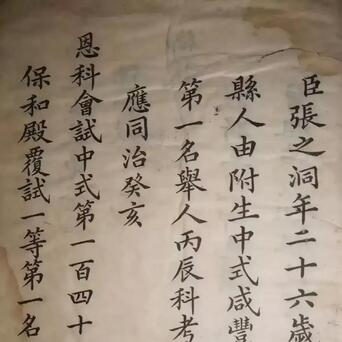 臣張之洞年二十六歲
縣人由附生中式咸豐
第一名舉人丙辰科考
應同治癸亥
恩科會試中式第一百四十
保和殿覆試一等第一名